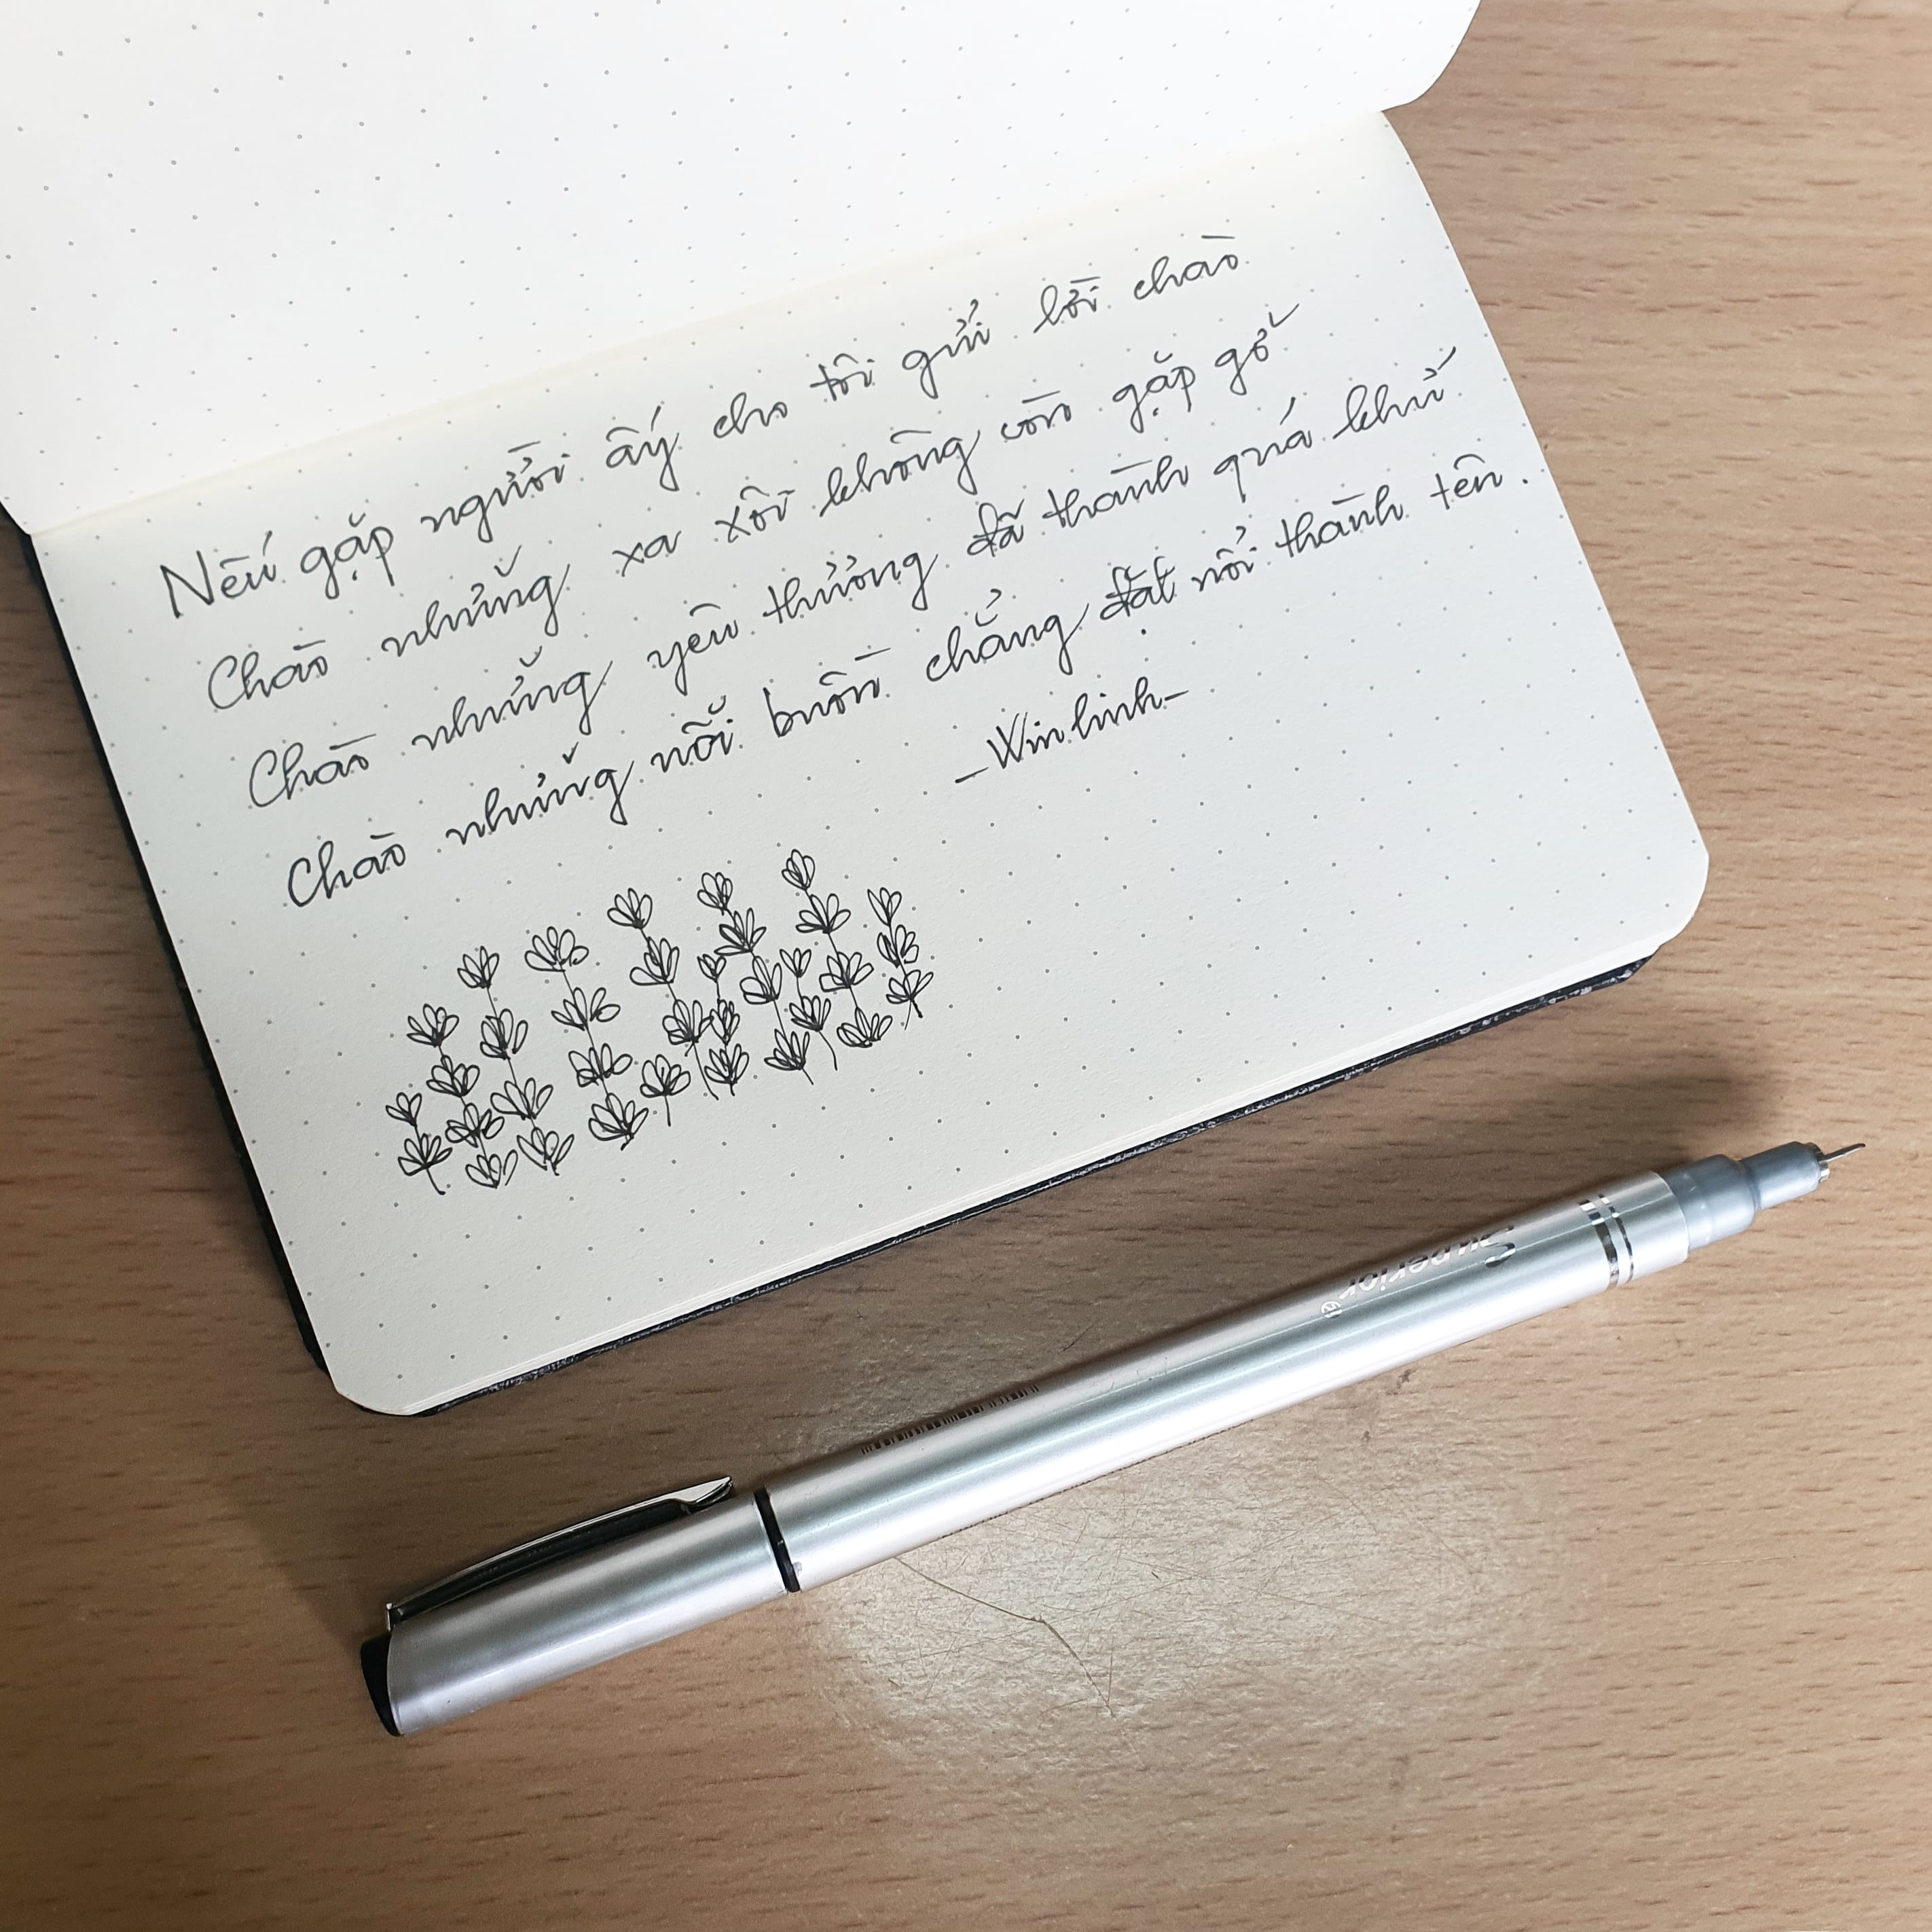 Nếu gặp người ấy cho tôi gửi lời chào
Chào những xa xôi không còn gặp gỡ
Chào những yêu thương đã thành quá khứ
Chào những nỗi buồn chẳng đặt nổi thành tên.
-Winlinh-
Superior